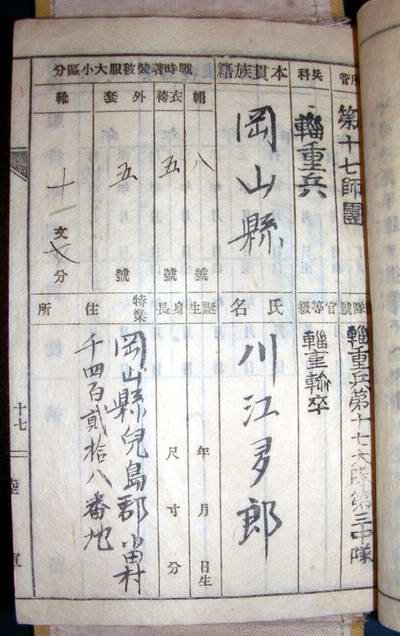 所管
第十七師團
隊號
輜重兵第十七大隊第三中隊
兵科
輜重兵
官等級
輜重輸卒
本貫族籍
岡山縣
氏名
川江多郎
戰時著裝被服大小區分
帽
八號
衣袴
五號
外套
五號
靴
十一文七分
誕生
年月日生
身長
尺寸分
特業
住所
岡山縣兒島郡
千四百貳拾八番地
十七